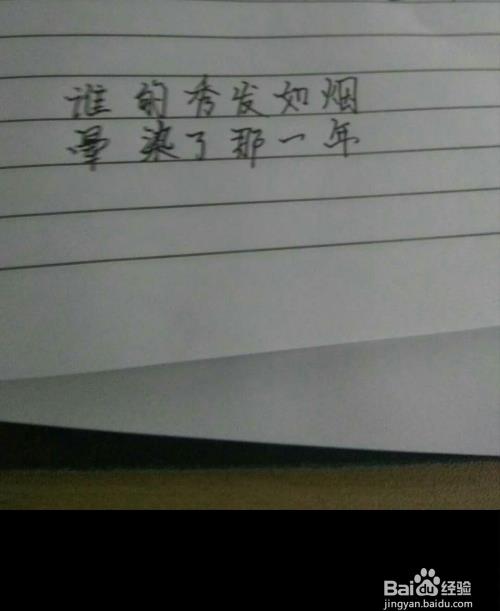 谁的秀发如烟
晕染了那一年
Bai du 经验
jingyan.baidu.com